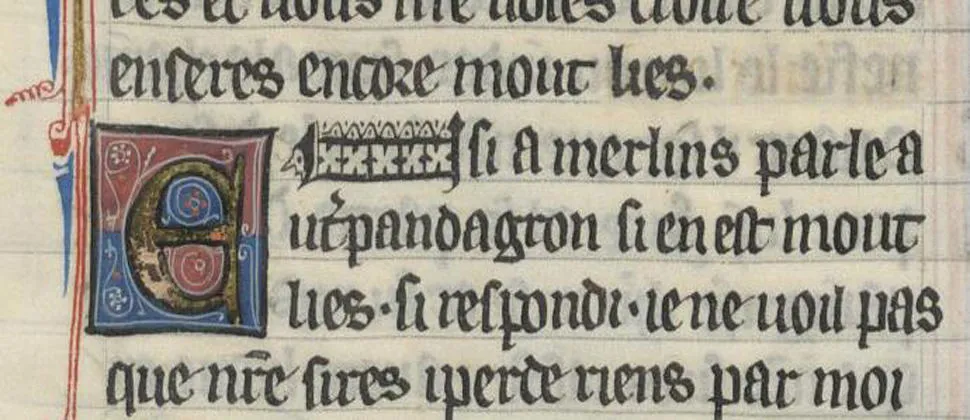 res et uous me uoles croire uous
enseres encore mout lies.
Ensi a merlins parle a
ut̾pandagron si en est mout
lies. si respondi. ie ne uoil pas
que nr̄e sires iperde riens par moi